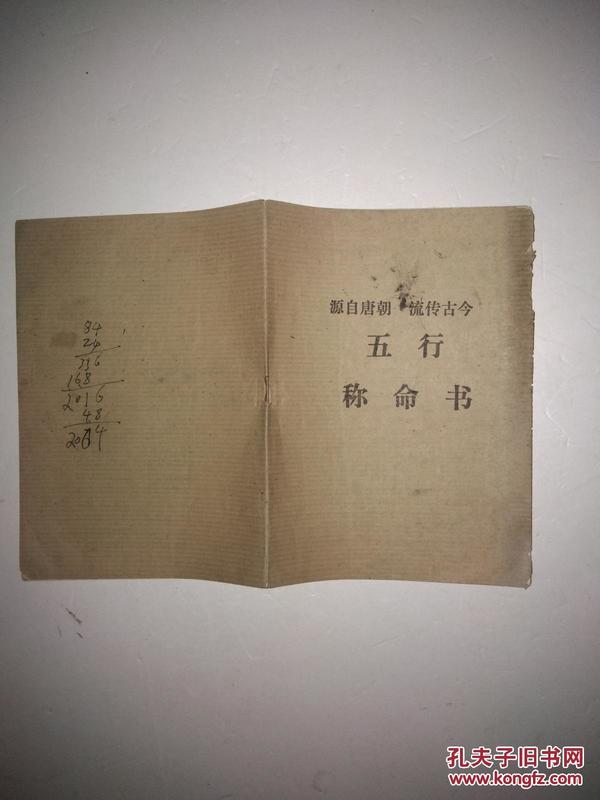 源自唐朝 流传古今
五行
称命书
84
24
336
168
2016
48
孔夫子旧书网
www.kongfz.com